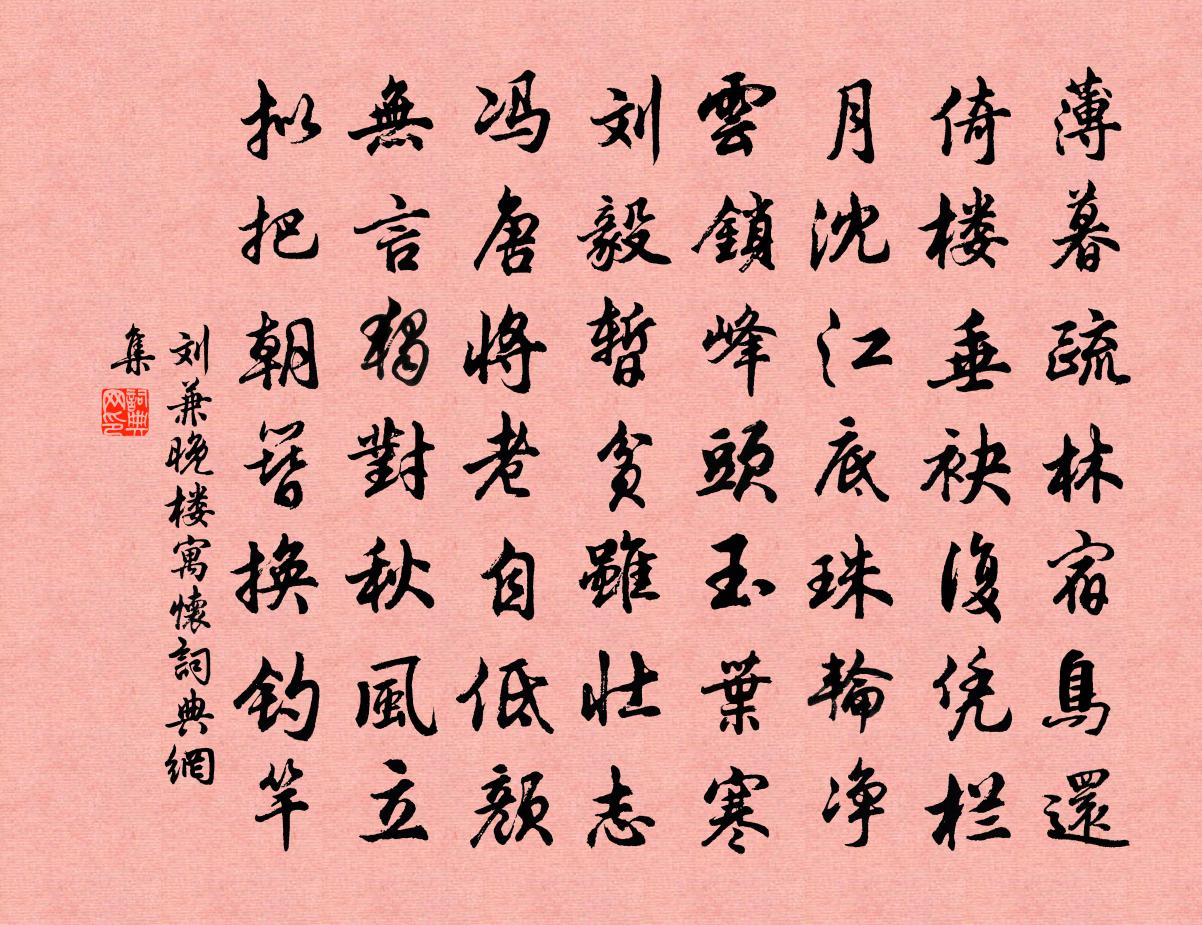 薄暮疏林宿鳥還
倚楼垂袂復凭栏
月沈江底珠輪净
雲鎖峰頭玉葉寒
刘毅暫贫雖壮志
冯唐將老自低顏
無言獨對秋風立
拟把朝簪換釣竿
刘兼晚楼寓懷詞典網
集
詞典
网印